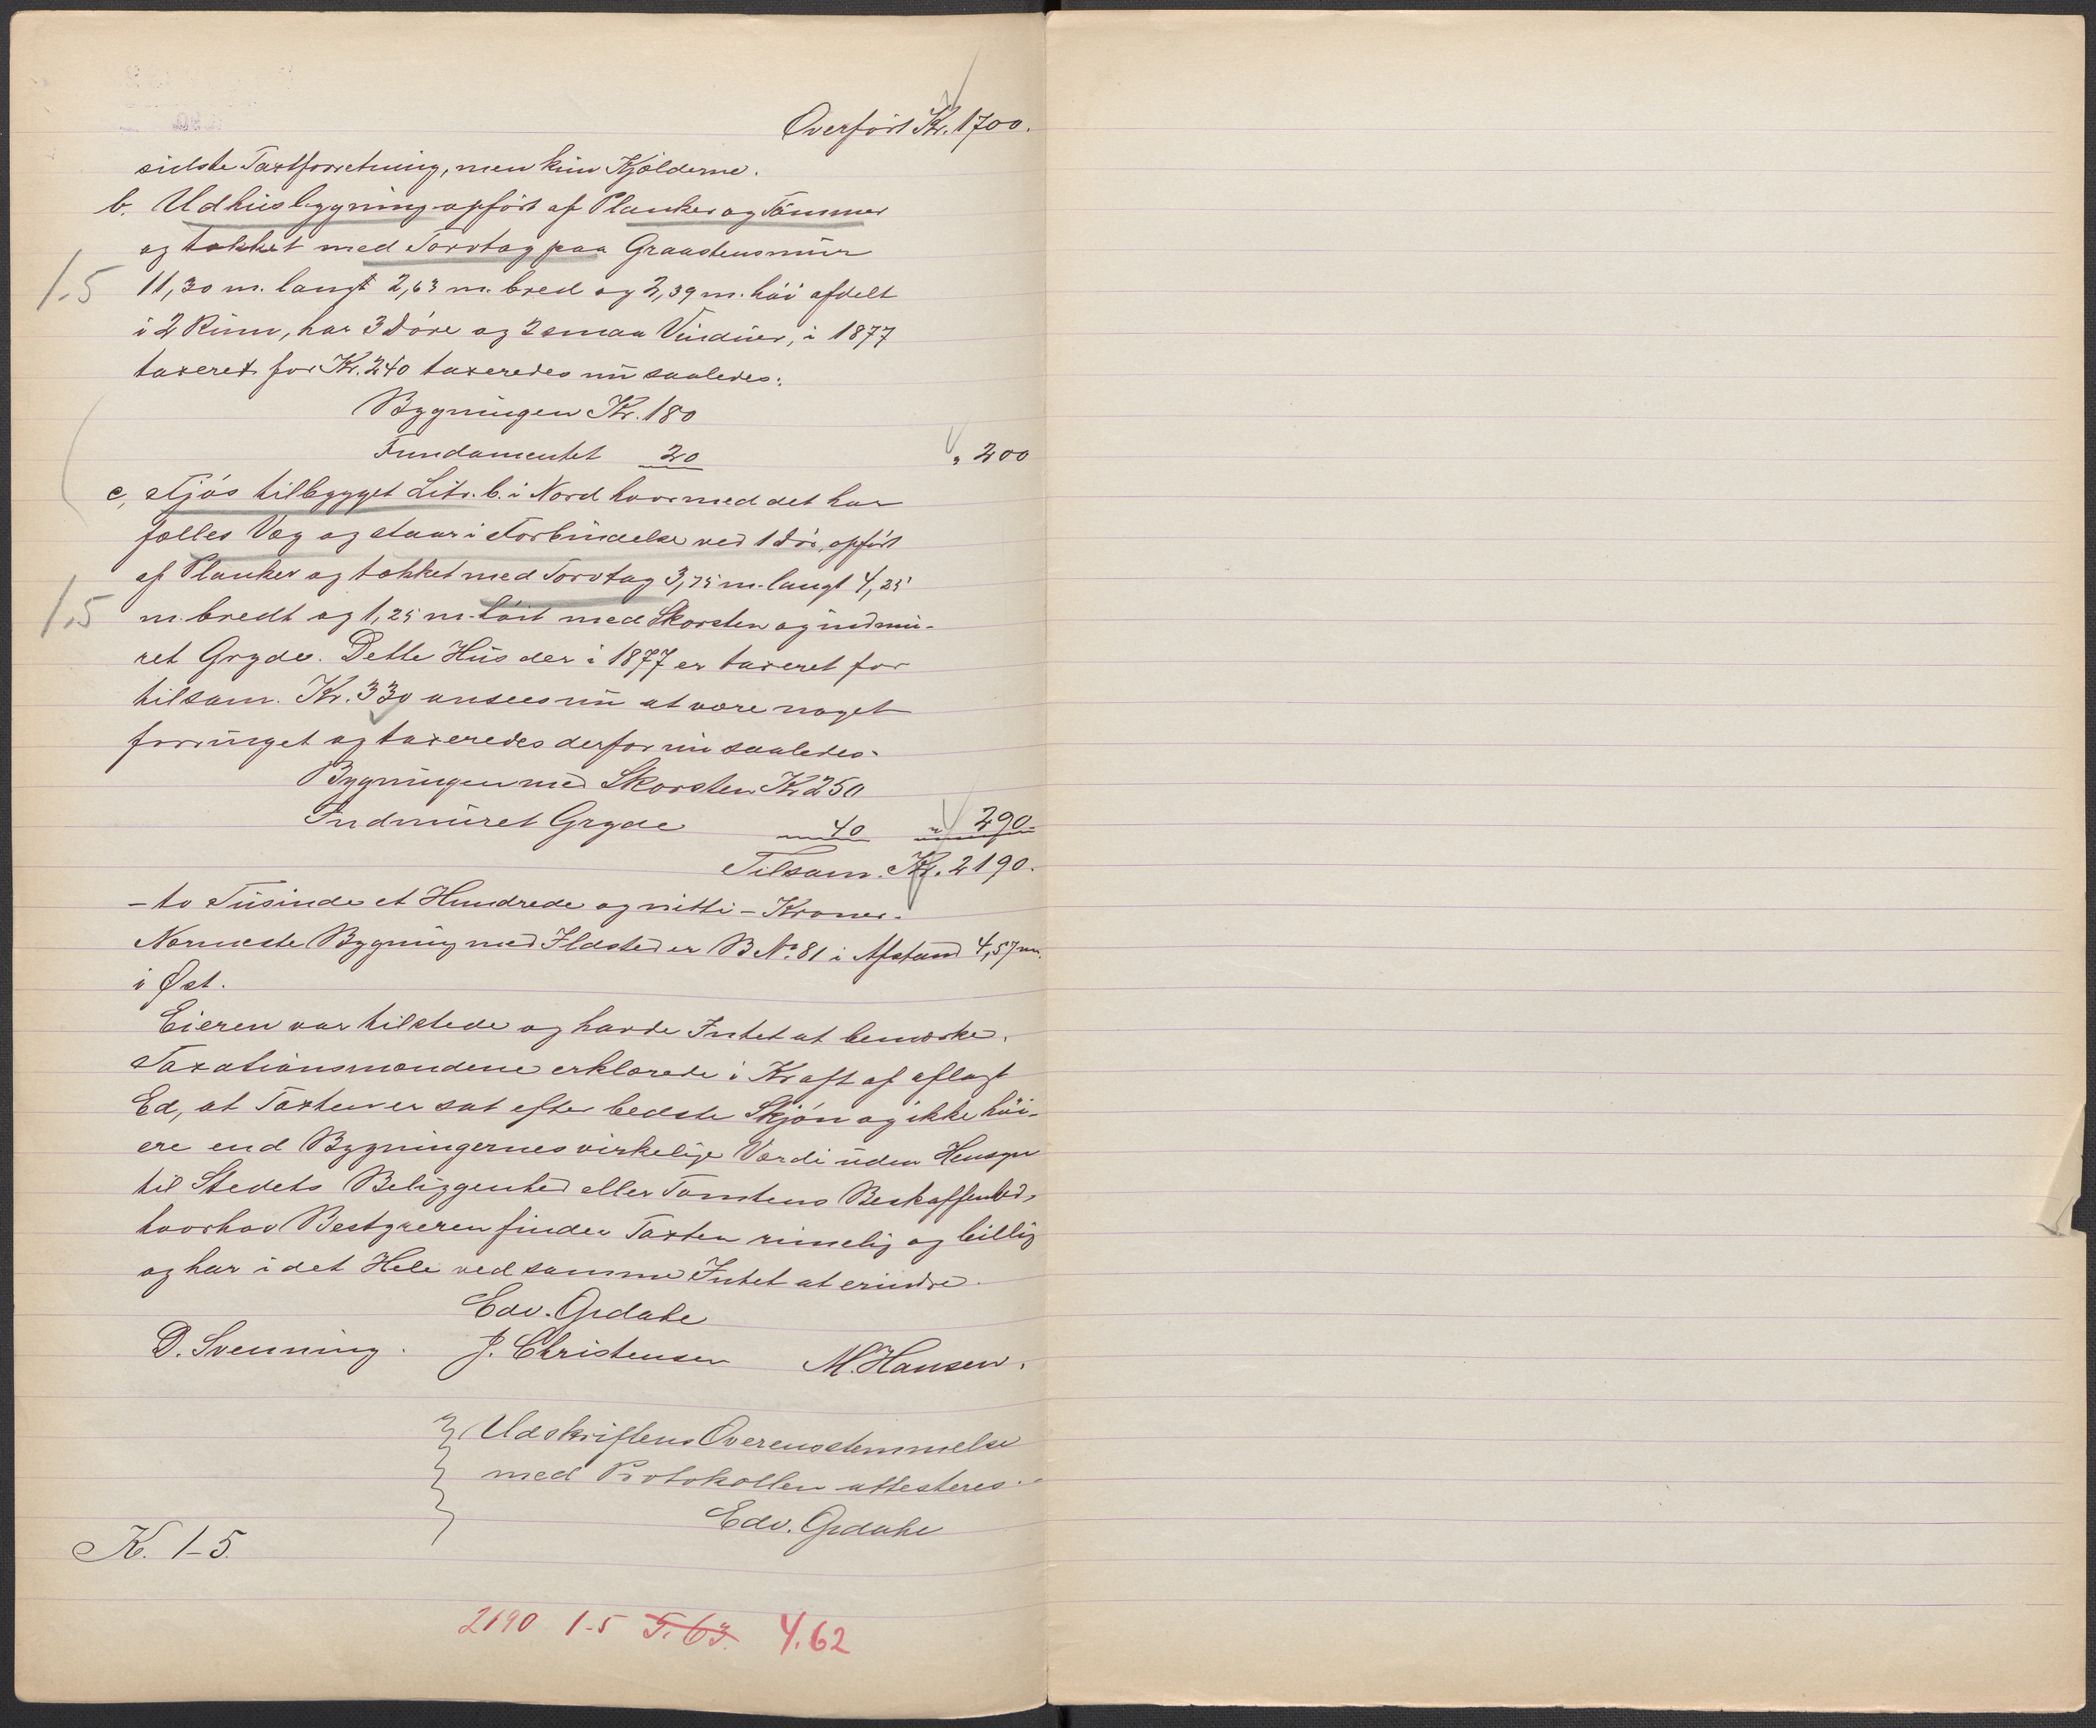 Overført Kr. 1700.
sidste Taxtforretning, men kun Kjælderne.
b. Udhusbygning opført af Planker og Tømmer
og tækket med Torvtag paa Graastensmur
1.5 11,30 m. langt 2,63 m. bred og 2,39 m. høi afdelt
i 2 Rum, har 3 Døre og 2 smaa Vinduer, i 1877
taxeret for Kr. 240 taxeredes nu saaledes:
Bygningen Kr. 180
Fundamentet 20 „ 200
c, Fjøs tilbygget Litr. b. i Nord hvormed det har
fælles Væg og staar i Forbindelse ved 1 Dør, opført
af Planker og tækket med Torvtag 3,75 m. langt 4,25
1.5 m. bredt og 1,25 m. høit med Skorsten og indmu-
ret Gryde. Dette Hus der i 1877 er taxeret for
tilsam. Kr. 330 ansees nu at være noget
forringet og taxeredes derfor nu saaledes:
Bygningen med Skorsten Kr 250
Indmuret Gryde 40 „ 290
Tilsam. Kr. 2190.
- to Tusinde et Hundrede og nitti - Kroner.
Nærmeste Bygning med Ildsted er B No. 81 i Afstand 4,57 m.
i Øst.
Eieren var tilstede og havde Intet at bemærke.
Taxationsmændene erklærede i Kraft af aflagt
Ed, at Taxten er sat efter bedste Skjøn og ikke høi-
ere end Bygningernes virkelige Værdi uden Hensyn
til Stedets Beliggenhed eller Tomtens Beskaffenhed,
hvorhos Bestyreren finder Taxten rimelig og billig
og har i det Hele ved samme Intet at erindre.
Edv.
D. Svenning. J. Christensen M. Hansen.
Udskriftens Overensstemmelse
med Protokollen attesteres.
Edv.
K. 1-5.
2190 1-5 5.63. 4.62